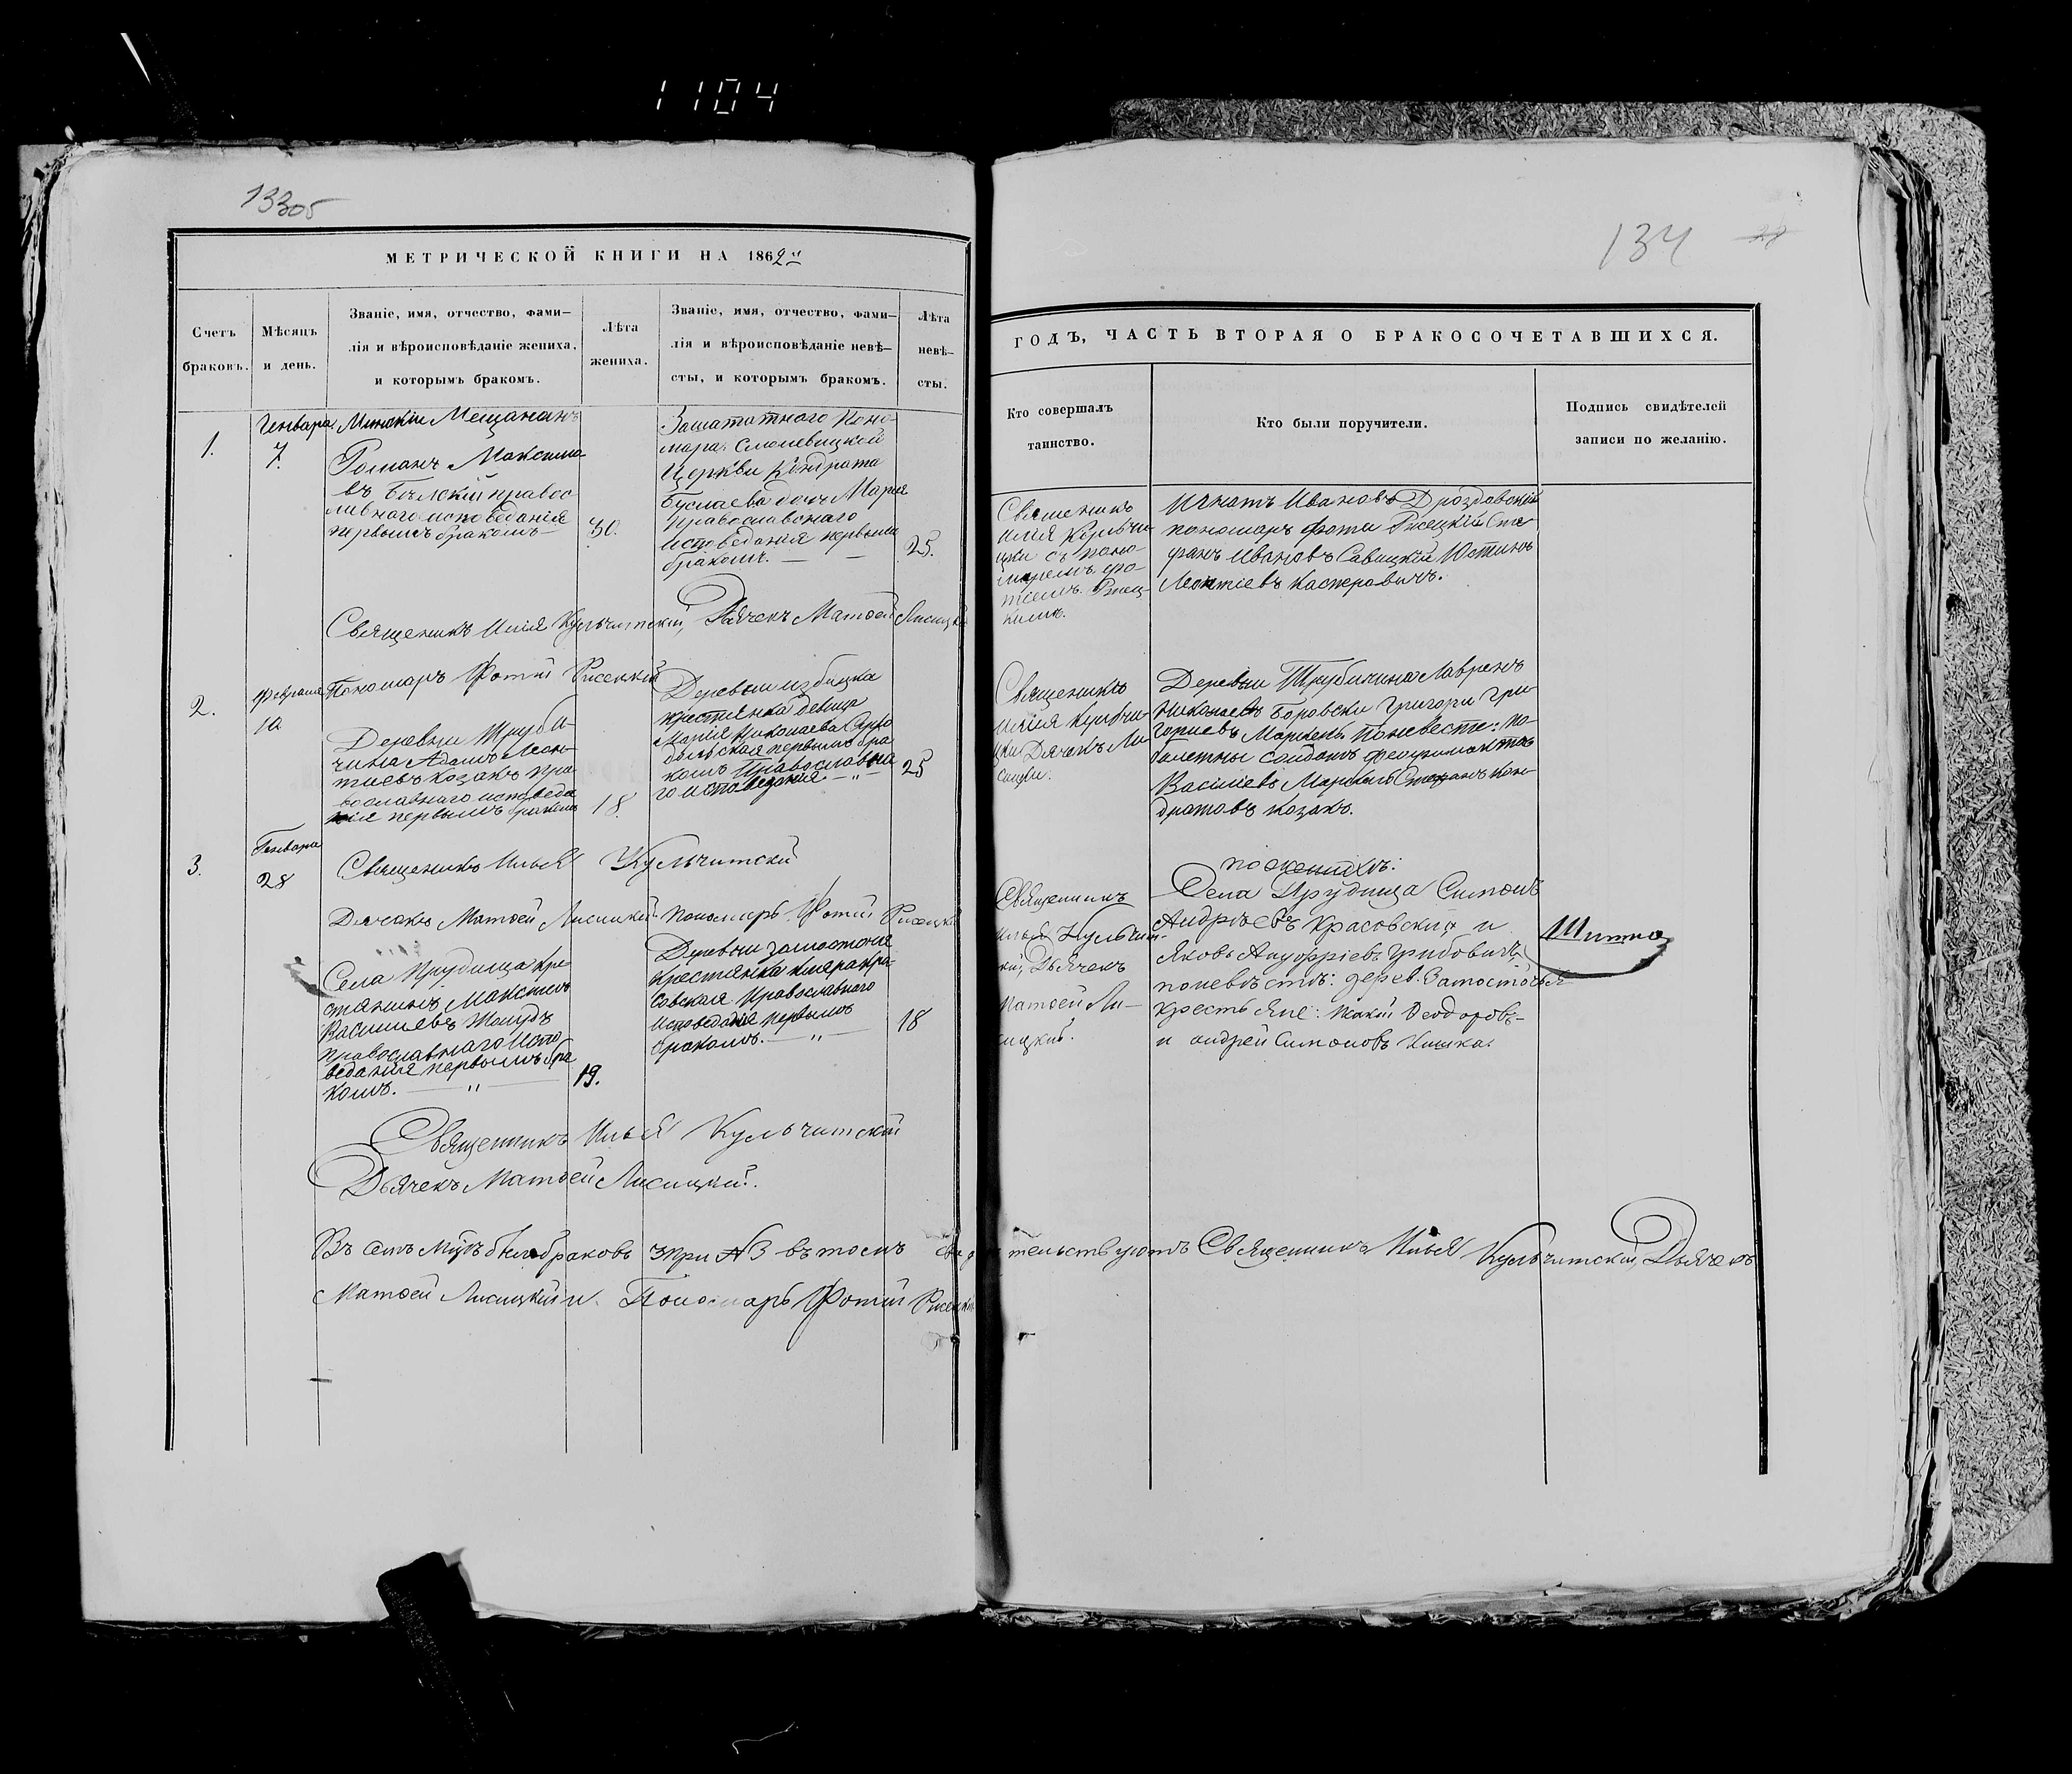 1104
133об
МЕТРИЧЕСКОЙ КНИГИ НА 1862й
Счетъ браковъ.
Мѣсяцъ и день.
Званіе, имя, отчество, фами-
лія и вѣроисповѣданіе жениха,
и которымъ бракомъ.
Лѣта
жениха.
Званіе, имя, отчество, фами-
лія и вѣроисповѣданіе невѣ-
сты, и которымъ бракомъ.
Лѣта
невѣ-
сты.
1.
Генвара
7.
Минскіи Мещананъ
Романъ Максимо
въ православного исповеданія
первымъ бракомъ
30.
Заштатного Поно-
мара Смолевицкой
Церкви Кондрата
Буслаева дочь Мария
Православнаго
исповеданія первымъ
бракомъ. —
25.
Священикъ Илія Кульчитскій, Дьячекъ Матөей Лисицкій
Пономаръ Фотій Рисецкій
2.
Февраля
10
Деревни Труби-
чина Адамъ Леон-
тиевъ Козакъ пра-
вославнаго исповеда
нія первымъ бракомъ
18.
Деревни избицка
крестиянка девица
Марія Николаева
первымъ бра
комъ Православна
го исповедания. — „ —
25
Священикъ Илья Кульчитскій
Дьячекъ Матөей Лисицкій Пономаръ Фотій Рисецкій
3.
Генвара
28
Села Прудища кре
стянинъ Максимъ
Василиевъ Жолудъ
православнаго Испо
ведания первымъ бра
комъ. — „ —
19.
Деревни замосточя
крестиянка Кра-
совская Православнаго
Исповедания первымъ
бракомъ. — „ —
18
Священникъ Илья Кульчитскій
Дьячекъ Матөей Лисицкій.
Въ семъ мцѣ было браковъ 3 при № 3 въ томъ свид
Матөей Лисицкій и Пономарь Фотій Рисецкій
134
ГОДЪ, ЧАСТЬ ВТОРАЯ О БРАКОСОЧЕТАВШИХСЯ.
Кто совершалъ
таинство.
Кто были поручители.
Подпись свидѣтелей
записи по желанію.
Священикъ
Илія Кульчи-
цки съ поно-
маремъ Фо-
тіемъ Рисец-
кимъ.
Игнатъ Ивановъ Дроздовскій
пономаръ Фоти Рисецкій Сте-
фанъ Ивановъ Савицкій Юстинъ
Леонтіевъ Касперовичъ.
Священикъ
Илія Кульчи-
цки Дячекъ Ли
сицки.
Деревни Трубичина Лавренъ
Николаевъ Боровски Григори Гри-
гориевъ Поневесте:
солдатъ
Василіевъ Стефанъ Кон-
дратовъ Козакъ.
Священникъ
Илья Кульчит-
кій, Дьячекъ
Матөей Ли-
сицкій.
По женихѣ:
Села Прудища Симонъ
Андрѣевъ Красовскій и
Яковъ Ануфріевъ Грибовичъ
поневѣстѣ: дерев. Замосточья
крестьяне: Өеодоровъ
и андрей Симоновъ Кишка.
тельствуютъ Священникъ Илья Кульчитскій, Дьячекъ